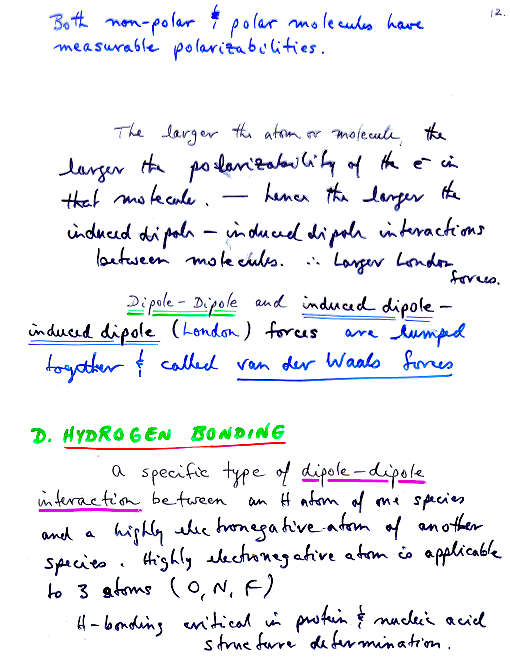 12.
Both non-polar & polar molecules have
measurable polarizabilities.
The larger the atom or molecule, the
larger the polarizability of the e⁻ in
that molecule. — hence the larger the
induced dipole – induced dipole interactions
between molecules. ∴ Larger London
forces.
Dipole-Dipole and induced dipole –
induced dipole (London) forces are lumped
together & called van der Waals forces
D. HYDROGEN BONDING
A specific type of dipole-dipole
interaction between an H atom of one species
and a highly electronegative atom of another
species. Highly electronegative atom is applicable
to 3 atoms (O, N, F)
H-bonding critical in protein & nucleic acid
structure determination.